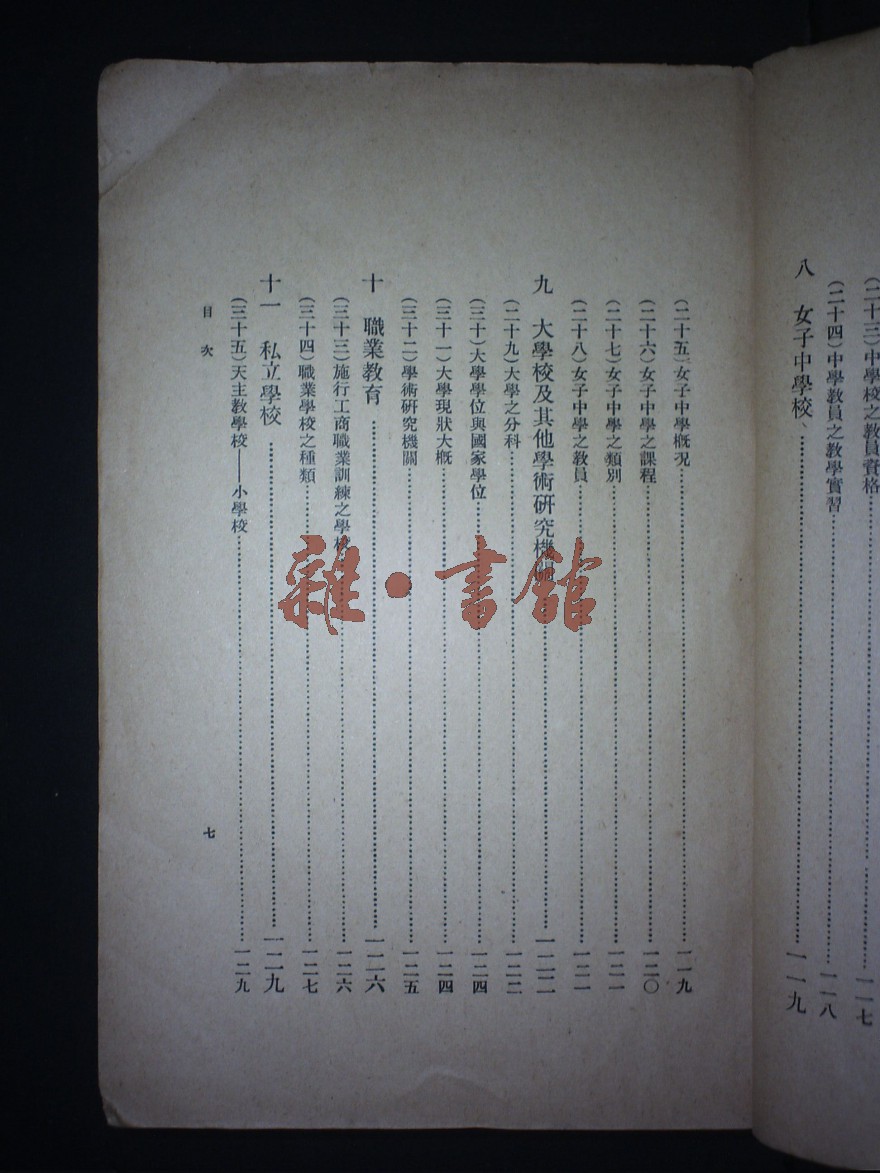 (二十三)中學校之教員資格……一一七
(二十四)中學教員之教學實習……一一八
八 女子中學校……一一九
(二十五)女子中學概况……一一九
(二十六)女子中學之課程……一二〇
(二十七)女子中學之類別……一二一
(二十八)女子中學之教員……一二一
九 大學校及其他學術研究機關……一二二
(二十九)大學之分科……一二二
(三十)大學學位與國家學位……一二四
(三十一)大學現狀大概……一二四
(三十二)學術研究機關……一二五
十 職業教育……一二六
(三十三)施行工商職業訓練之學校……一二六
(三十四)職業學校之種類……一二七
十一 私立學校……一二九
(三十五)天主教學校——小學校……一二九
目次 七
雜·書館